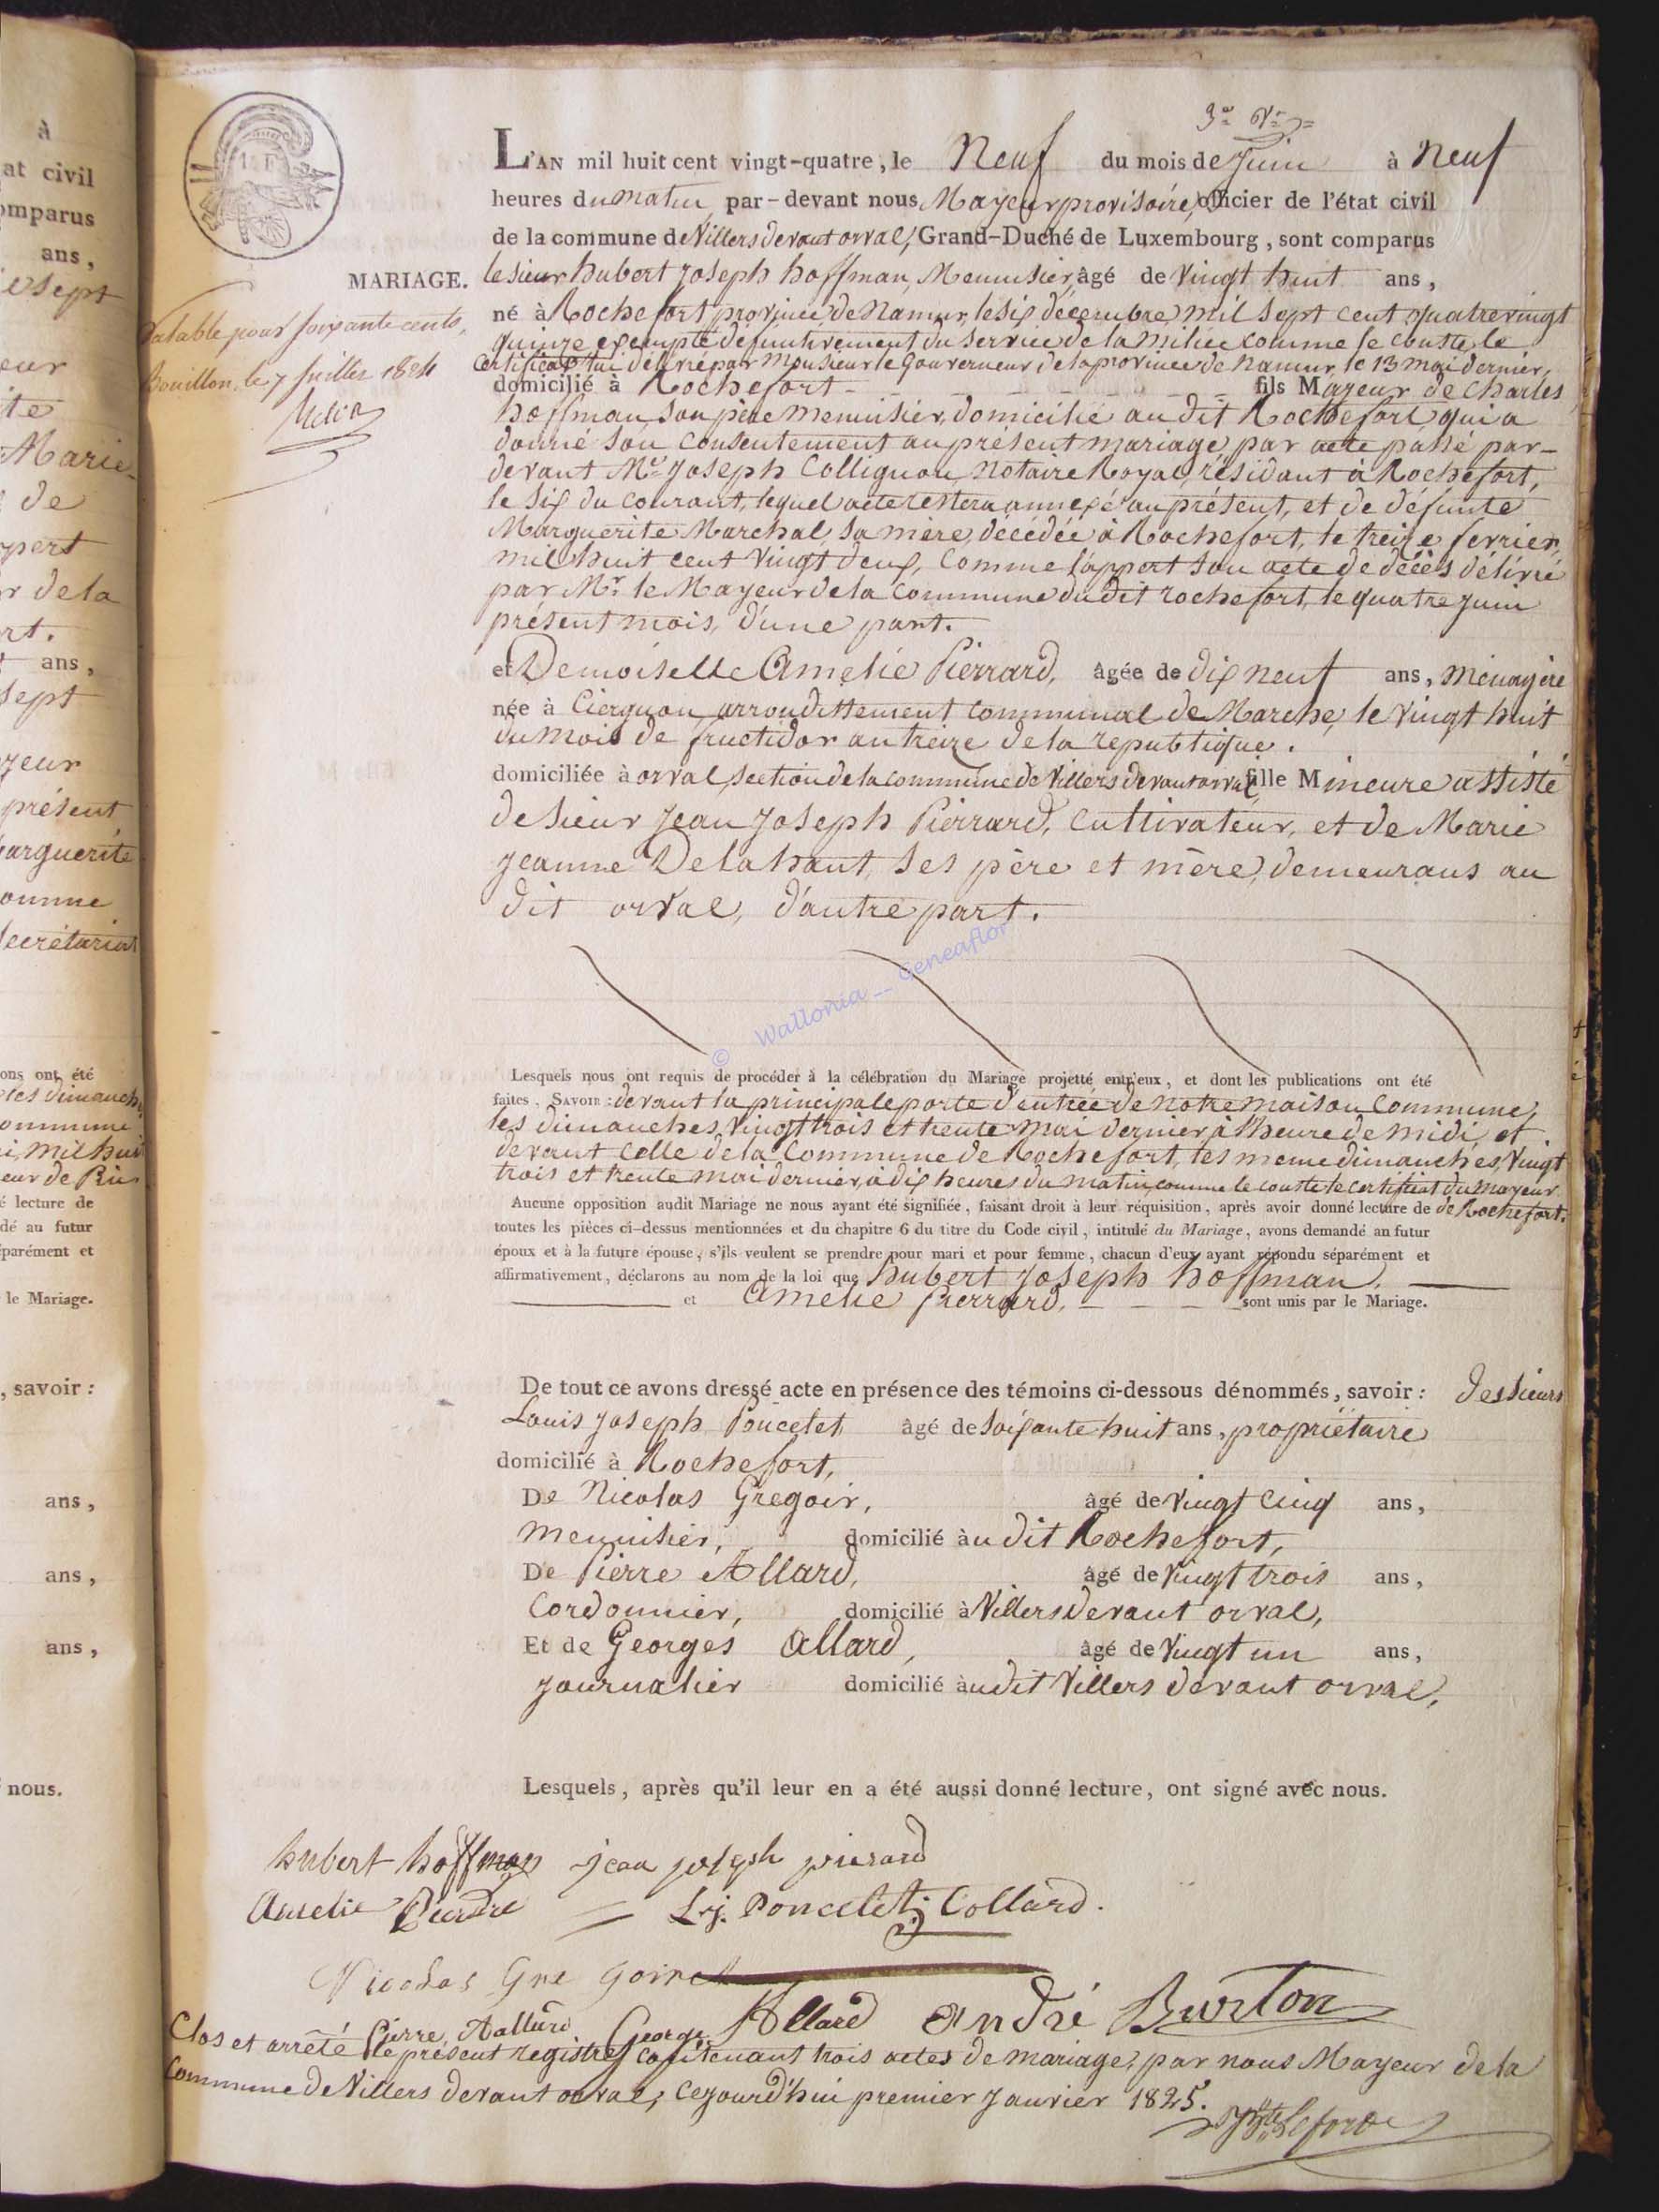 à
at civil
omparus
ans,
esept
eur
ite
Marie
de
pert
r dela
rt.
ans,
sept
yeur
présent
arguerite
omme
secrétariat
ons ont été
les dimanch
ommune
i, mil huit
eur de
é lecture de
dé au futur
éparément et
le Mariage.
, savoir :
ans,
ans,
ans,
nous.
MARIAGE.
Valable pour soixante cents,
Bouillon, le 7 Juillet 1824
3e
L'AN mil huit cent vingt-quatre, le Neuf du mois de Juin à Neuf
heures du matin par-devant nous Mayeur provisoire, officier de l'état civil
de la commune de Villers devant orval, Grand-Duché de Luxembourg, sont comparus
le sieur hubert Joseph hoffman, Menuisier, âgé de Vingt huit ans,
né à Rochefort province de Namur, le six décembre mil sept cent quatrevingt
quinze exempté définitivement du service de la milice comme le conste le
certificat lui délivré par Monsieur le Gouverneur de la province de Namur, le 13 mai dernier,
domicilié à Rochefort - fils Mayeur de Charles
hoffman son père menuisier, domicilié au dit Rochefort qui a
donné son consentement au présent mariage, par acte passé par-
devant Me Joseph Collignon Notaire Royal, résidant à Rochefort,
le six du courant, lequel acte restera annexé au présent, et de défunte
Marguerite Marchal, sa mère, décédée à Rochefort, le treize fevrier
mil huit cent vingt deux, comme l'appert son acte de décès délivré
par Mr le Mayeur de la Commune du dit rochefort, le quatre juin
présent mois, d'une part.
et Demoiselle Amelie Pierrard, âgée de dix neuf ans, ménagère
née à Ciergnon arrondissement communal de Marche, le vingt huit
du mois de fructidor an treize de la republique.
domiciliée à orval, section de la commune de Villers devant orval, fille Mineure assisté
de sieur Jean Joseph Pierrard, cultivateur, et de Marie
Jeanne Delahaut, ses père et mère, demeurans au
dit orval, d'autre part.
© Wallonia _ Geneaflor
Lesquels nous ont requis de procéder à la célébration du Mariage projetté entr'eux, et dont les publications ont été
faites, SAVOIR : devant la principale porte d'entrée de notre maison Commune,
les dimanches, Vingt trois et trente mai dernier à l'heure de midi, et
devant celle de la Commune de Rochefort, les meme dimanches, Vingt
trois et trente mai dernier, à dix heures du matin, comme le conste le certificat du Mayeur
Aucune opposition audit Mariage ne nous ayant été signifiée, faisant droit à leur réquisition, après avoir donné lecture de de Rochefort.
toutes les pièces ci-dessus mentionnées et du chapitre 6 du titre du Code civil, intitulé du Mariage, avons demandé au futur
époux et à la future épouse, s'ils veulent se prendre pour mari et pour femme, chacun d'eux ayant répondu séparément et
affirmativement, déclarons au nom de la loi que hubert Joseph hoffman,
et Amelie Pierrard, - - - sont unis par le Mariage.
De tout ce avons dressé acte en présence des témoins ci-dessous dénommés, savoir : des sieurs
Louis Joseph Poncelet âgé de soixante huit ans, propriétaire
domicilié à Rochefort,
De Nicolas Gregoir, âgé de vingt cinq ans,
menuisier, domicilié au dit Rochefort,
De Pierre Allard, âgé de vingt trois ans,
Cordonnier, domicilié à Villers devant orval,
Et de Georges Allard, âgé de vingt un ans,
journalier domicilié au dit Villers devant orval,
Lesquels, après qu'il leur en a été aussi donné lecture, ont signé avec nous.
hubert hoffman jean joseph pierard
Amelie L.j. Poncelet, Collard.
Nicolas Gre goire
Pierre Aallard George Allard André Burton
Clos et arrêté le présent registre contenant trois actes de mariage, par nous Mayeur de la
Commune de Villers devant orval, cejourd'hui premier Janvier 1825.